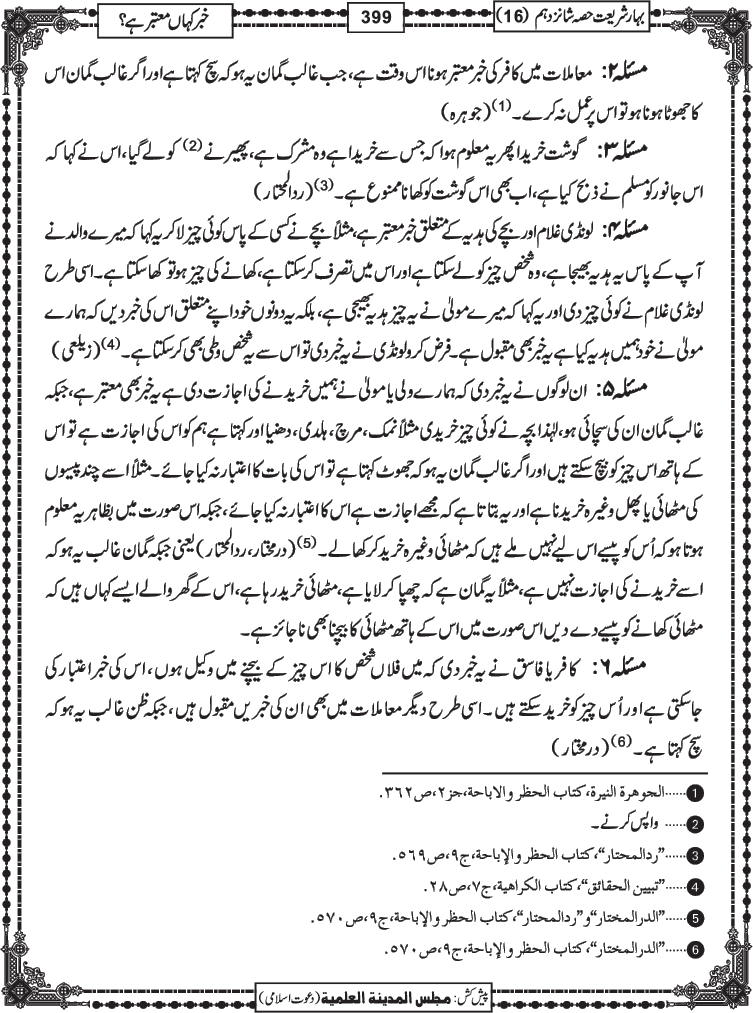 بہار شریعت حصہ شانزدہم (16)
399
خبر کہاں معتبر ہے؟
مسئلہ ۲: معاملات میں کافر کی خبر معتبر ہونا اس وقت ہے، جب غالب گمان یہ ہو کہ سچ کہتا ہے اور اگر غالب گمان اس
کا جھوٹا ہونا ہو تو اس پر عمل نہ کرے۔(1) (جوہرہ)
مسئلہ ۳: گوشت خریدا پھر یہ معلوم ہوا کہ جس سے خریدا ہے وہ مشرک ہے، پھیرنے(2) کو لے گیا، اس نے کہا کہ
اس جانور کو مسلم نے ذبح کیا ہے، اب بھی اس گوشت کو کھانا ممنوع ہے۔(3) (ردالمحتار)
مسئلہ ۴: لونڈی غلام اور بچے کی ہدیہ کے متعلق خبر معتبر ہے، مثلاً بچے نے کسی کے پاس کوئی چیز لا کر یہ کہا کہ میرے والد نے
آپ کے پاس یہ ہدیہ بھیجا ہے، وہ شخص چیز کو لے سکتا ہے اور اس میں تصرف کر سکتا ہے، کھانے کی چیز ہو تو کھا سکتا ہے۔ اسی طرح
لونڈی غلام نے کوئی چیز دی اور یہ کہا کہ میرے مولیٰ نے یہ چیز ہدیہ بھیجی ہے، بلکہ یہ دونوں خود اپنے متعلق اس کی خبر دیں کہ ہمارے
مولیٰ نے خود ہمیں ہدیہ کیا ہے یہ خبر بھی مقبول ہے۔ فرض کرو لونڈی نے یہ خبر دی تو اس سے یہ شخص وطی بھی کر سکتا ہے۔(4) (زیلعی)
مسئلہ ۵: ان لوگوں نے یہ خبر دی کہ ہمارے ولی یا مولیٰ نے ہمیں خریدنے کی اجازت دی ہے یہ خبر بھی معتبر ہے، جبکہ
غالب گمان ان کی سچائی ہو، لہٰذا بچہ نے کوئی چیز خریدی مثلاً نمک، مرچ، ہلدی، دھنیا اور کہتا ہے ہم کو اس کی اجازت ہے تو اس
کے ہاتھ اس چیز کو بیچ سکتے ہیں اور اگر غالب گمان یہ ہو کہ جھوٹ کہتا ہے تو اس کی بات کا اعتبار نہ کیا جائے۔ مثلاً اسے چند پیسوں
کی مٹھائی یا پھل وغیرہ خریدنا ہے اور یہ بتاتا ہے کہ مجھے اجازت ہے اس کا اعتبار نہ کیا جائے، جبکہ اس صورت میں بظاہر یہ معلوم
ہوتا ہو کہ اُس کو پیسے اس لیے نہیں ملے ہیں کہ مٹھائی وغیرہ خرید کر کھالے۔(5) (درمختار، ردالمحتار) یعنی جبکہ گمان غالب یہ ہو کہ
اسے خریدنے کی اجازت نہیں ہے، مثلاً یہ گمان ہے کہ چھپا کر لایا ہے، مٹھائی خرید رہا ہے، اس کے گھر والے ایسے کہاں ہیں کہ
مٹھائی کھانے کو پیسے دے دیں اس صورت میں اس کے ہاتھ مٹھائی کا بیچنا بھی ناجائز ہے۔
مسئلہ ۶: کافر یا فاسق نے یہ خبر دی کہ میں فلاں شخص کا اس چیز کے بیچنے میں وکیل ہوں، اس کی خبر اعتبار کی
جاسکتی ہے اور اُس چیز کو خرید سکتے ہیں۔ اسی طرح دیگر معاملات میں بھی ان کی خبریں مقبول ہیں، جبکہ ظن غالب یہ ہو کہ
سچ کہتا ہے۔(6) (درمختار)
1 ......الجوهرة النيرة، كتاب الحظر والاباحة، جز ۲، ص ۳۶۲.
2 ......واپس کرنے۔
3 ......”ردالمحتار“، كتاب الحظر والإباحة، ج ۹، ص ۵۶۹.
4 ......”تبيين الحقائق“، كتاب الكراهية، ج ۷، ص ۲۸.
5 ......”الدرالمختار“ و”ردالمحتار“، كتاب الحظر والإباحة، ج ۹، ص ۵۷۰.
6 ......”الدرالمختار“، كتاب الحظر والإباحة، ج ۹، ص ۵۷۰.
پیش کش: مجلس المدينة العلمية (دعوت اسلامی)